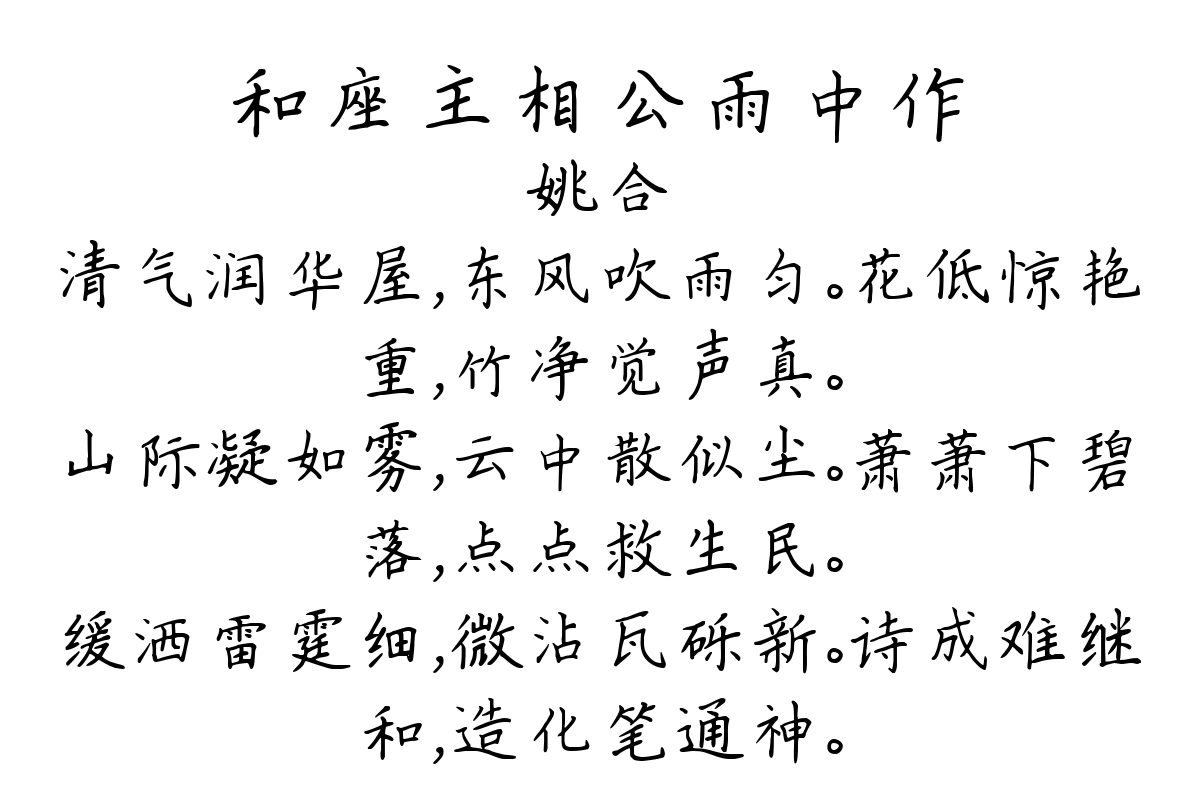 和座主相公雨中作
姚合
清气润华屋,东风吹雨匀。花低惊艳
重,竹净觉声真。
山际凝如雾,云中散似尘。萧萧下碧
落,点点救生民。
缓洒雷霆细,微沾瓦砾新。诗成难继
和,造化笔通神。